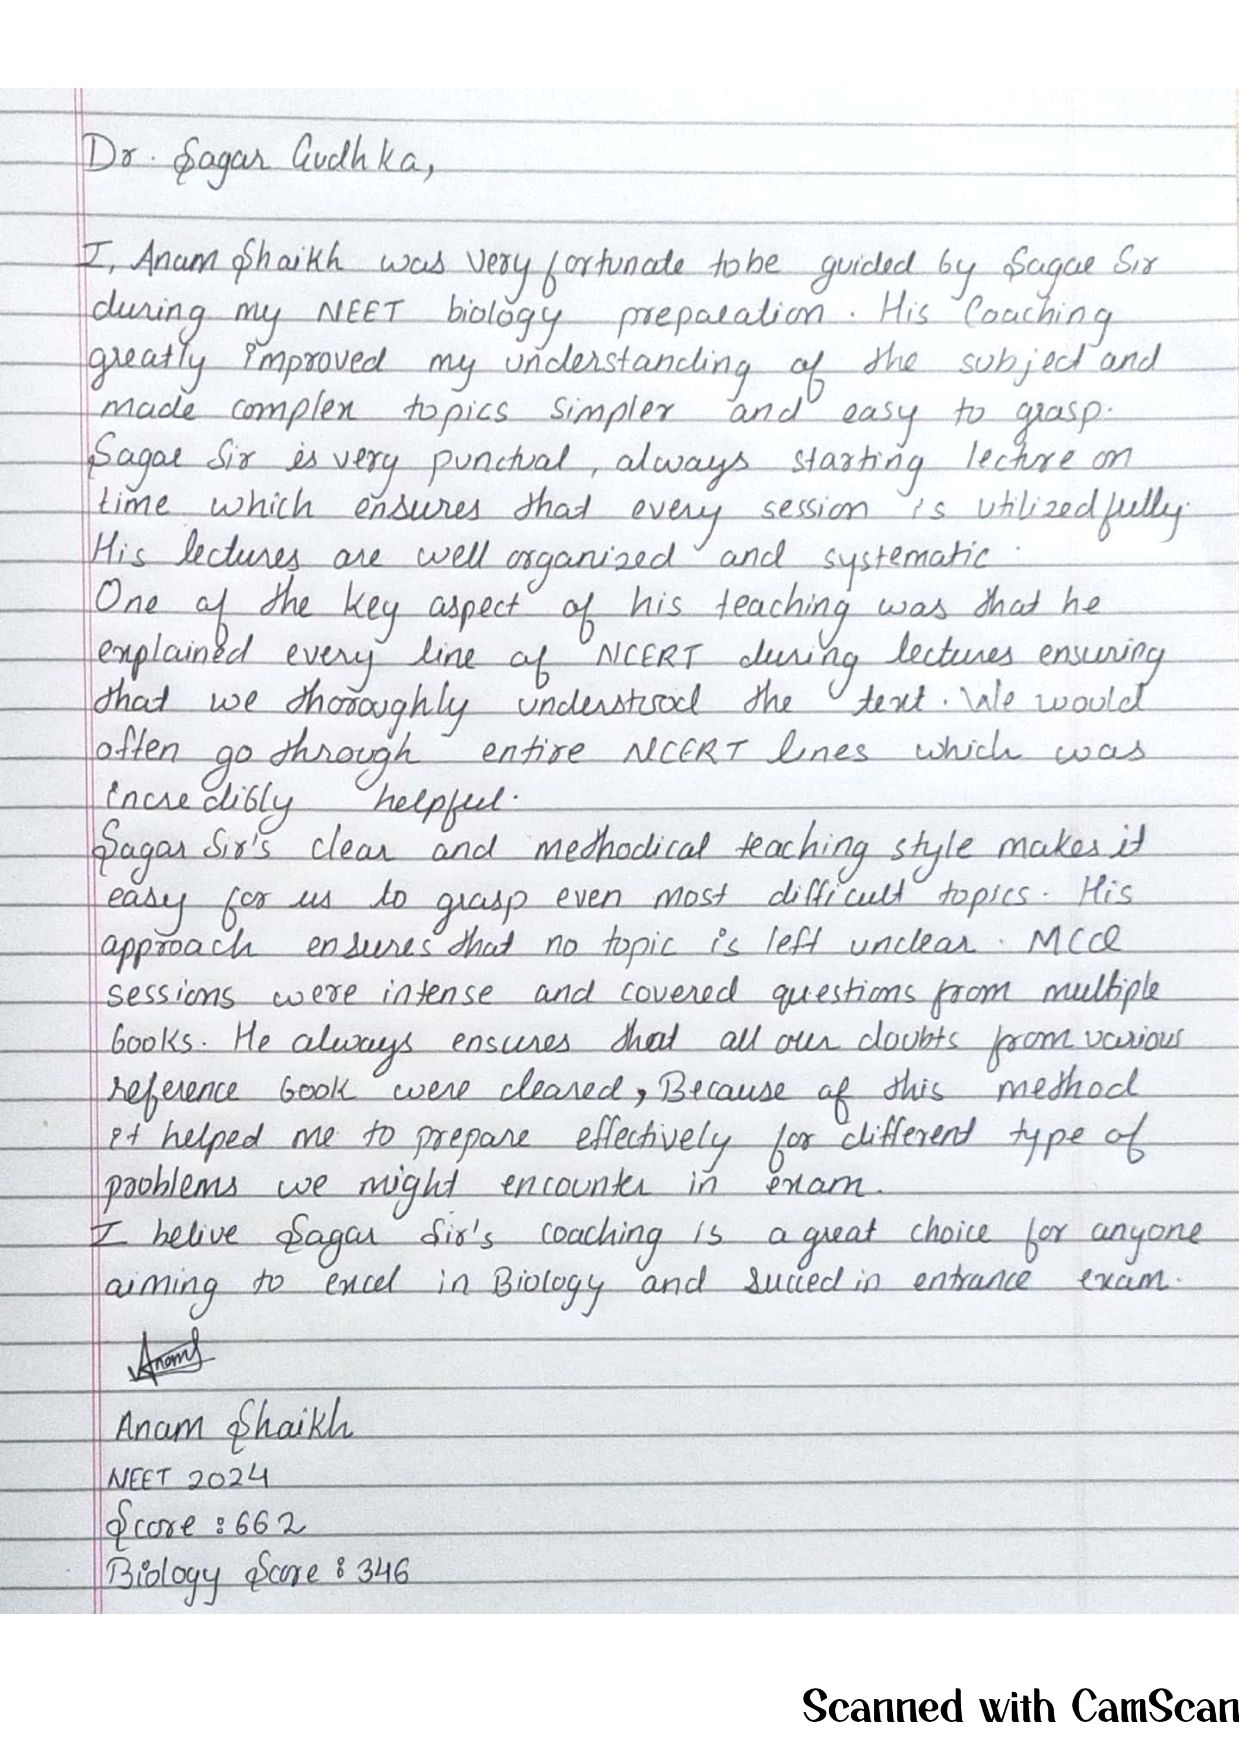 Dr. Sagar Gudhka,
I, Anam Shaikh was very fortunate tobe guided by Sagar Sir
during my NEET biology preparation. His Coaching
greatly improved my understanding of the subject and
made complex topics simpler and easy to grasp.
Sagar Sir is very punctual, always starting lecture on
time which ensures that every session is utilized fully.
His lectures are well organized and systematic.
One of the key aspect of his teaching was that he
explained every line of NCERT during lectures ensuring
that we thoroughly understood the text. We would
often go through entire NCERT lines which was
incredibly helpful.
Sagar Sir's clear and methodical teaching style makes it
easy for us to grasp even most difficult topics. His
approach ensures that no topic is left unclear. MCQ
sessions were intense and covered questions from multiple
books. He always ensures that all our doubts from various
reference book were cleared, Because of this method
it helped me to prepare effectively for different type of
problems we might encounter in exam.
I belive Sagar Sir's coaching is a great choice for anyone
aiming to excel in Biology and succed in entrance exam.
Anam
Anam Shaikh
NEET 2024
Score : 662
Biology Score : 346
Scanned with CamScan